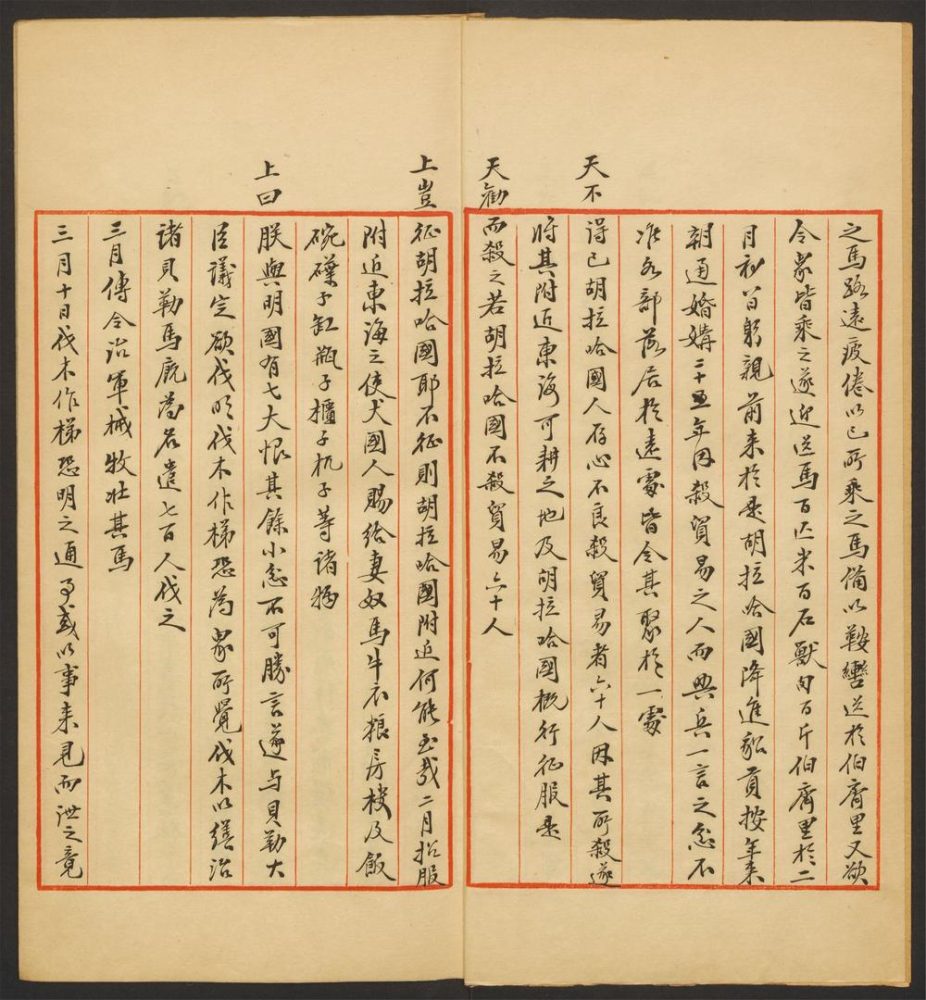 之馬路遠疲倦以己所乘之馬備以鞍轡送於伯齊里又欲
令眾皆乘之遂迎送馬百匹米百石獸肉百斤伯齊里於二
月初一日躬親前來於是胡拉哈國降進貂貢按年來
朝通婚媾二十五年因殺貿易之人而興兵一言之忿不
准各部落居於遠處皆令其聚於一處
天不
得已胡拉哈國人存心不良殺貿易者六十人因其所殺遂
將其附近東海可耕之地及胡拉哈國概行征服是
天勸而殺之若胡拉哈國不殺貿易六十人
上豈征胡拉哈國耶不征則胡拉哈國附近何能至哉二月招服
附近東海之使犬國人賜給妻奴馬牛衣糧房棧及飯
碗磲子缸瓶子櫃子杌子等諸物
上曰
朕與明國有七大恨其餘小忿不可勝言遂与貝勒大
臣議定欲伐明伐木作梯恐為眾所覺伐木以繕治
諸貝勒馬廄為名遣七百人伐之
三月傳令治軍械牧壯其馬
三月十日伐木作梯恐明之通事或以事来見而泄之竟